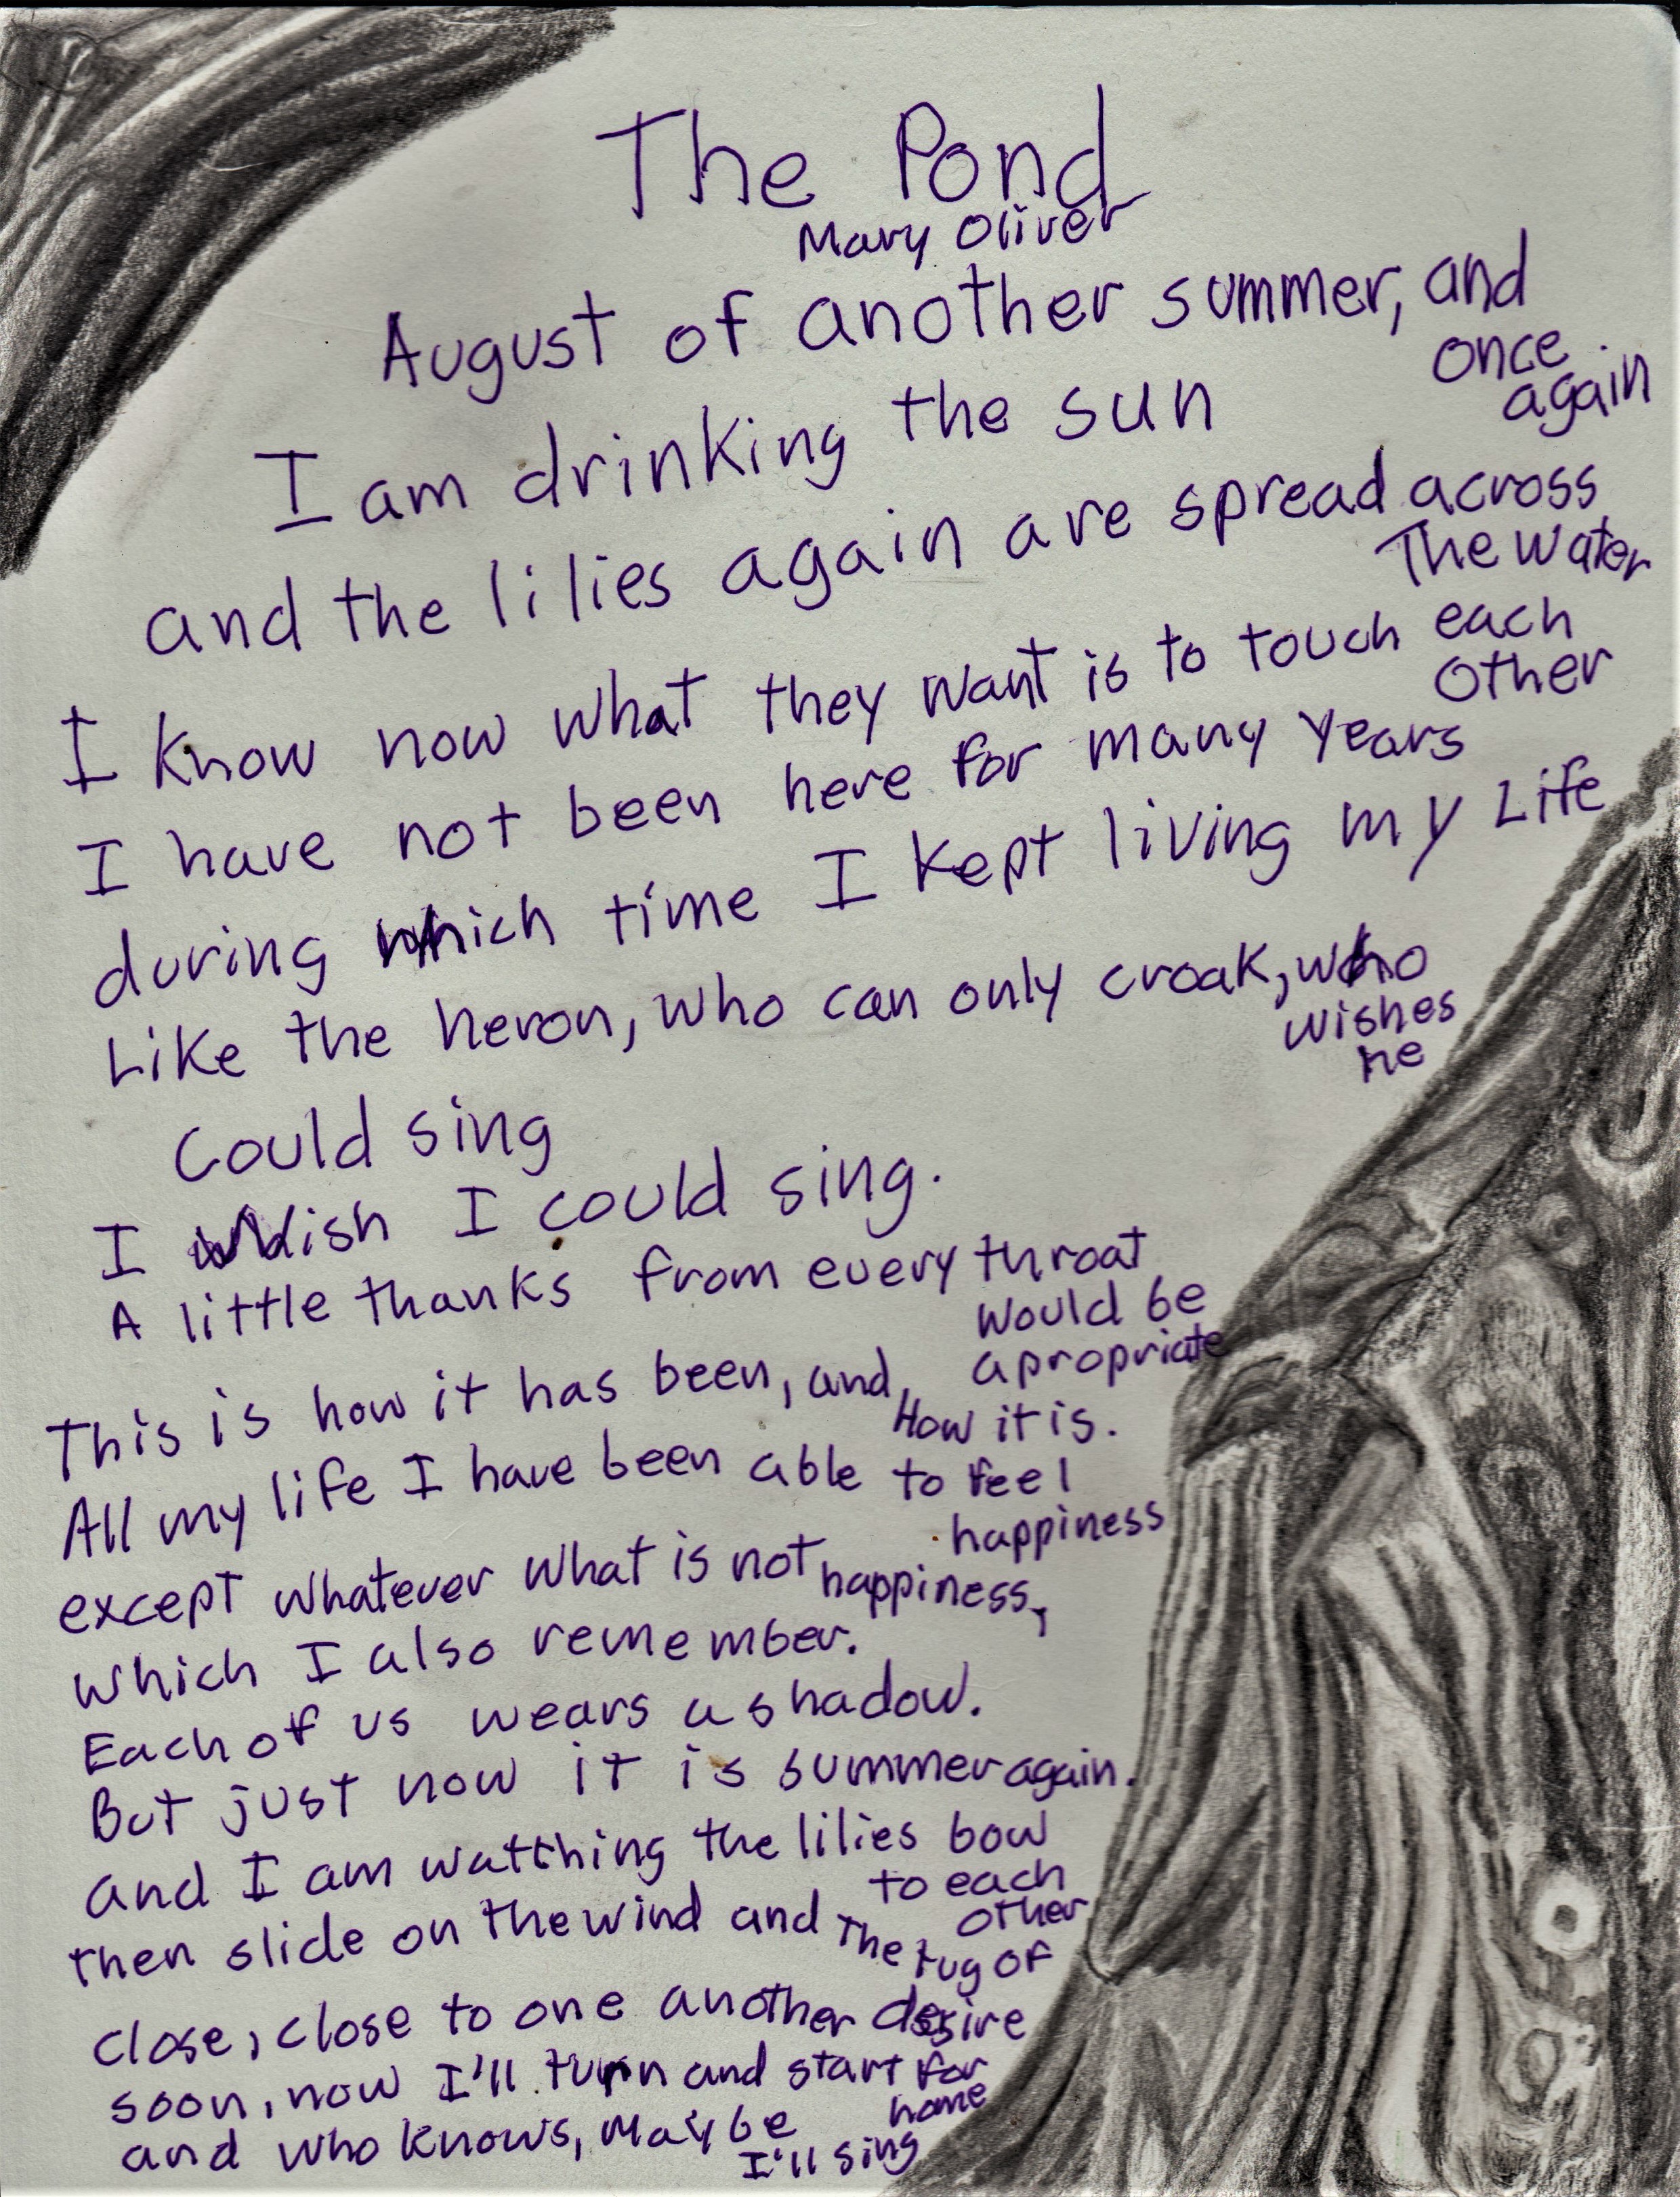 The Pond
Mary Oliver
August of another summer, and
once
again
I am drinking the sun
and the lilies again are spread across
The water
I know now what they want is to touch each
other
I have not been here for many years
during which time I kept living my Life
Like the heron, who can only croak, who
wishes
he
Could sing
I wish I could sing.
A little thanks from every throat
would be
apropriate
This is how it has been, and,
How it is.
All my life I have been able to feel
happiness
except whatever what is not happiness,
which I also remember.
Each of us wears a shadow.
But just now it is summer again.
and I am watthing the lilies bow
to each
other
then slide on the wind and The tug of
desire
close, close to one another
soon, now I'll turn and start for
home
and who knows, maybe
I'll sing